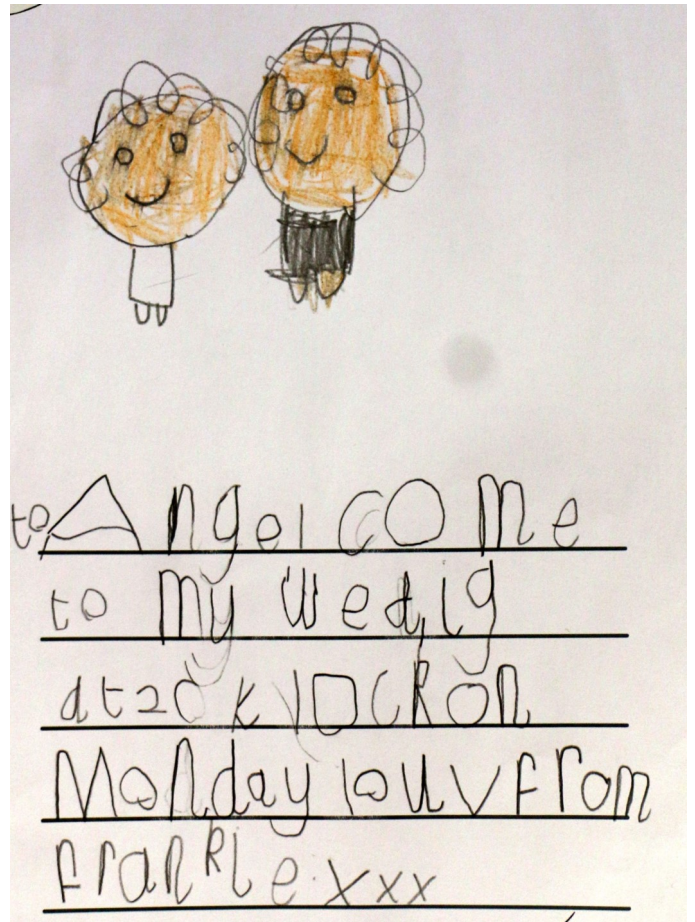 to Angel come
to my wedig
at 2 O k lock on
Monday louv from
frankie xxx